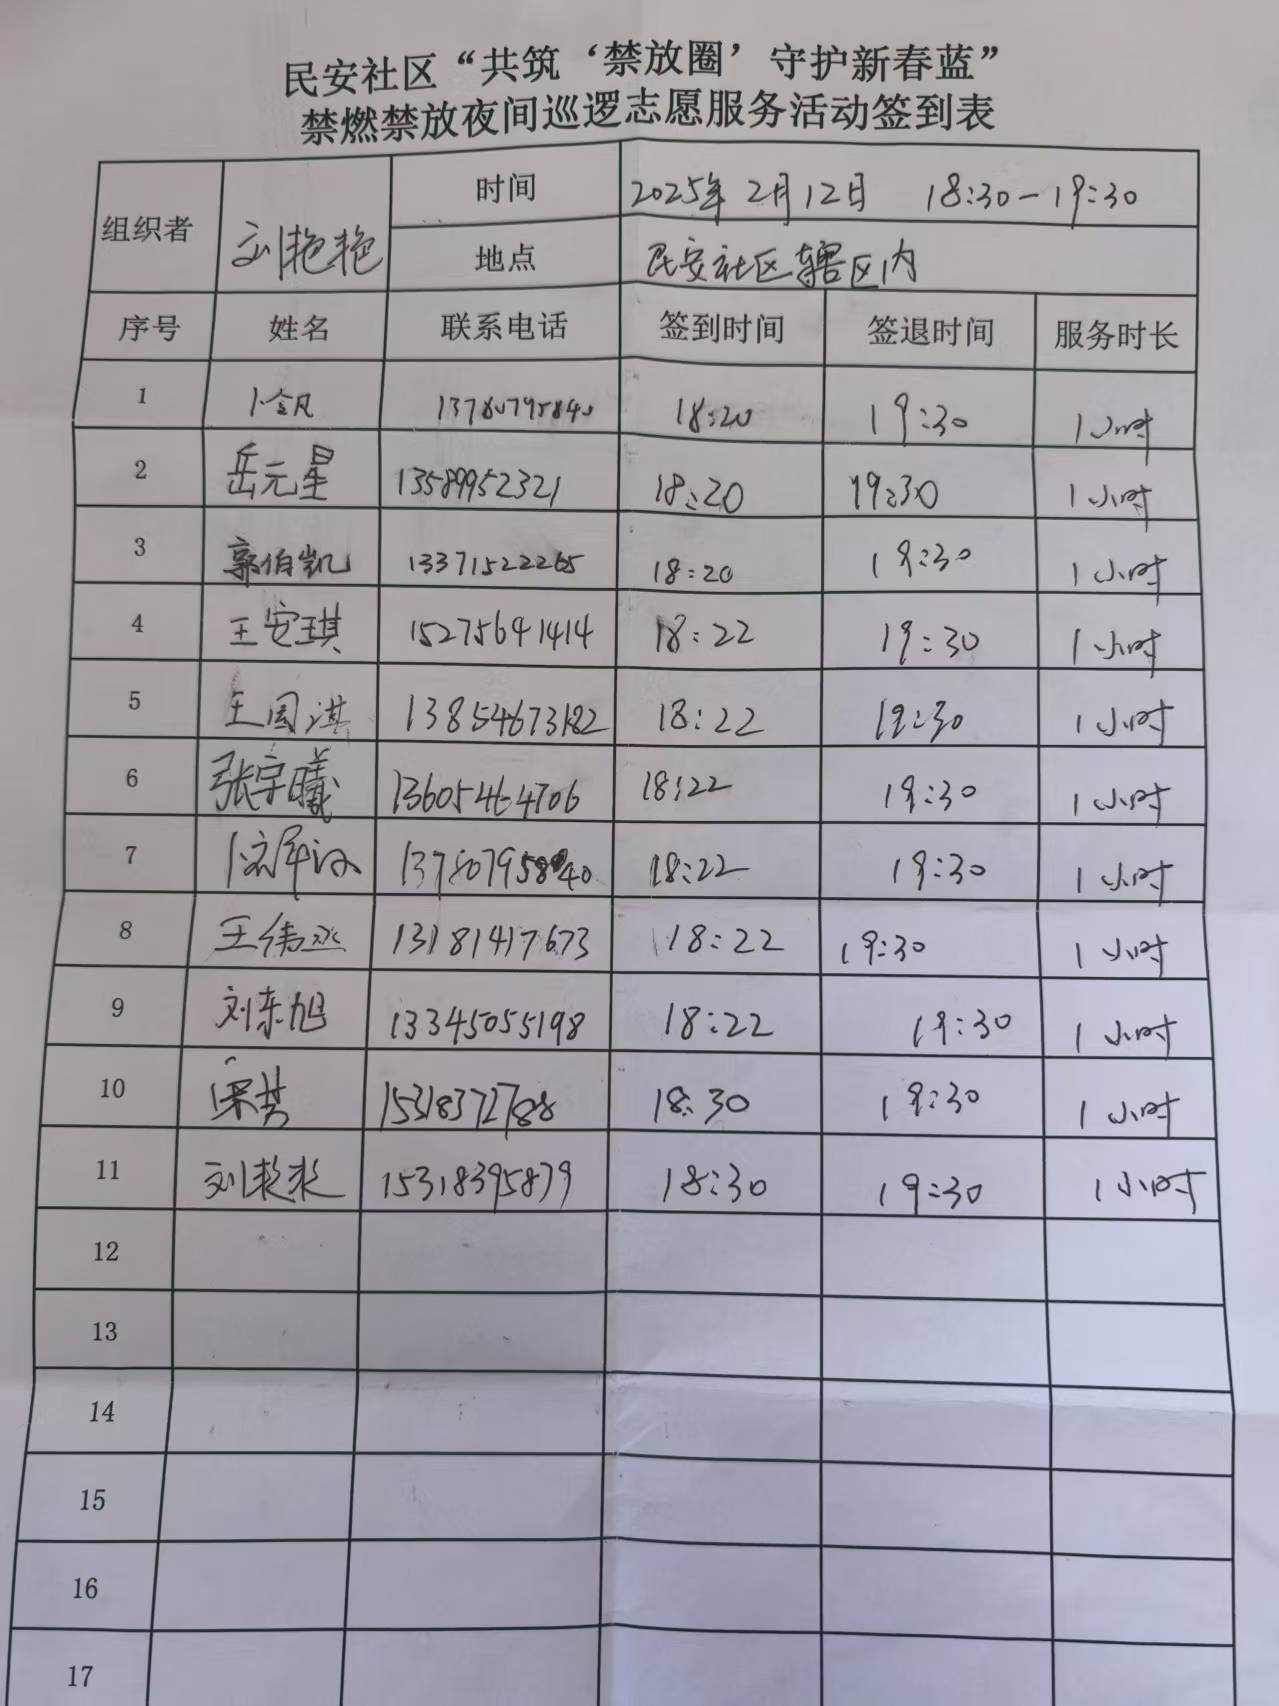 民安社区“共筑‘禁放圈’守护新春蓝”
禁燃禁放夜间巡逻志愿服务活动签到表
组织者 刘艳艳 时间 2025年2月12日 18:30-19:30
地点 民安社区辖区内
序号 姓名 联系电话 签到时间 签退时间 服务时长
1 18:20 19:30 1小时
2 岳元星 13589952321 18:20 19:30 1小时
3 郭伯凯 13371522265 18:20 19:30 1小时
4 王安琪 15275641414 18:22 19:30 1小时
5 王国淇 13854673182 18:22 19:30 1小时
6 张宇曦 13605464706 18:22 19:30 1小时
7 18:22 19:30 1小时
8 王伟丞 13181417673 18:22 19:30 1小时
9 刘东旭 13345055198 18:22 19:30 1小时
10 15318372788 18:30 19:30 1小时
11 15318395879 18:30 19:30 1小时
12
13
14
15
16
17